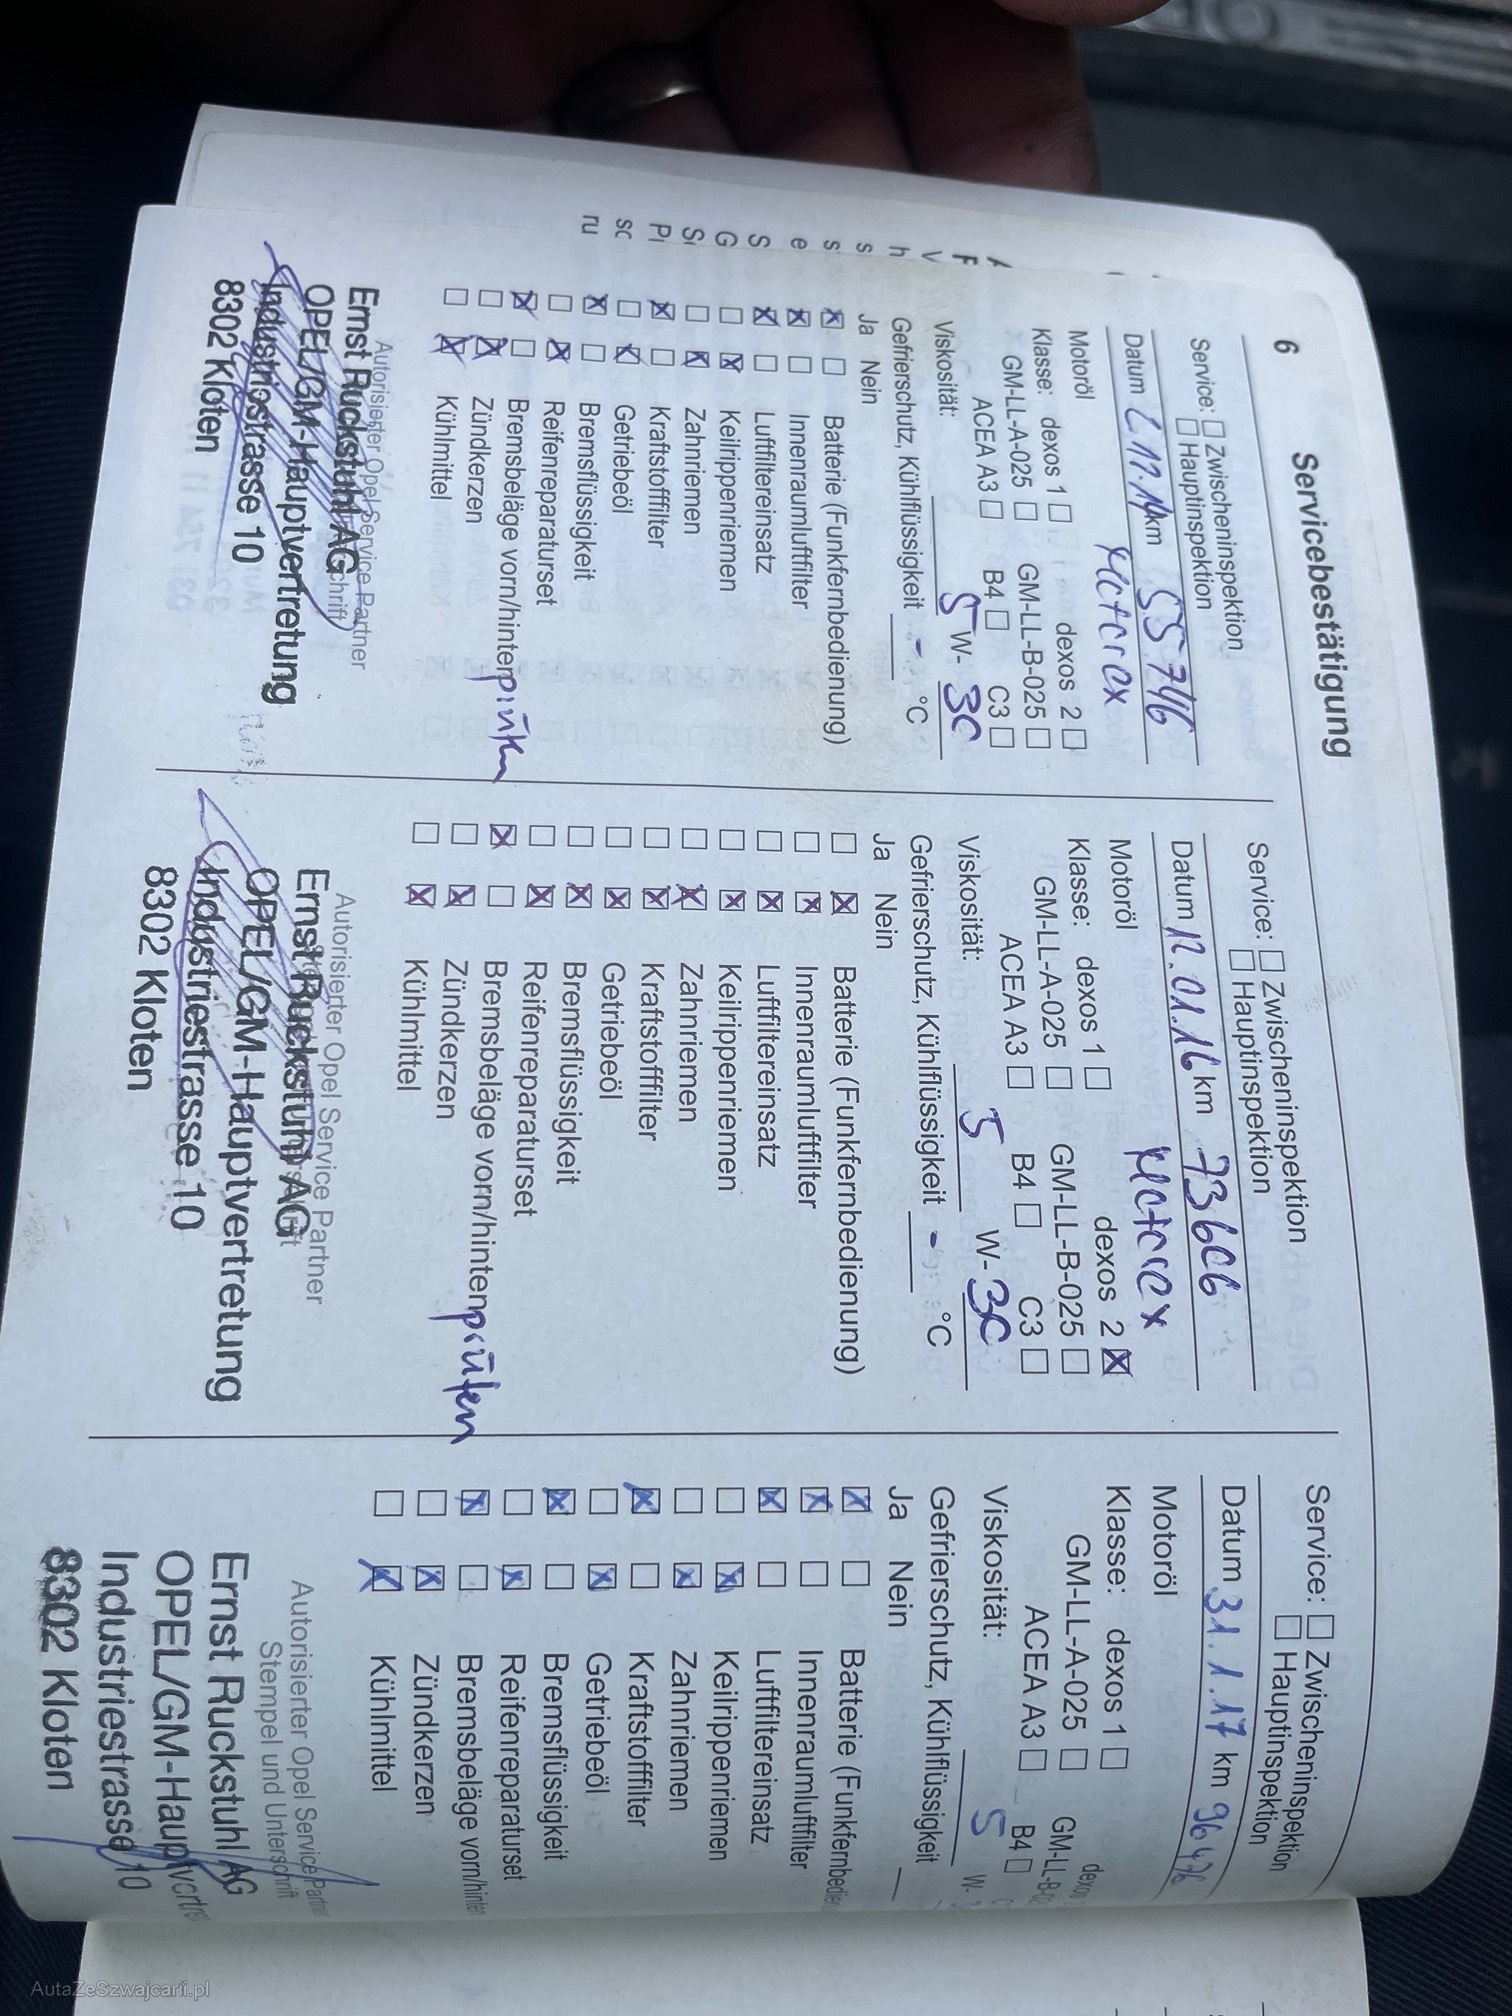 6
Servicebestätigung
Service: ☐ Zwischeninspektion
☐ Hauptinspektion
Datum km 55746
Motoröl
Klasse: dexos 1 ☐ dexos 2 ☐
GM-LL-A-025 ☐ GM-LL-B-025 ☐
ACEA A3 ☐ B4 ☐ C3 ☐
Viskosität: 5 W- 30
Gefrierschutz, Kühlflüssigkeit - °C
Ja Nein
☒ ☐ Batterie (Funkfernbedienung)
☒ ☐ Innenraumluftfilter
☒ ☐ Luftfiltereinsatz
☐ ☒ Keilrippenriemen
☐ ☒ Zahnriemen
☒ ☐ Kraftstofffilter
☐ ☒ Getriebeöl
☒ ☐ Bremsflüssigkeit
☐ ☒ Reifenreparaturset
☒ ☐ Bremsbeläge vorn/hinten prüfen
☐ ☒ Zündkerzen
☐ ☒ Kühlmittel
Autorisierter Opel Service Partner
Ernst Ruckstuhl AG
OPEL/GM-Hauptvertretung
Industriestrasse 10
8302 Kloten
Service: ☐ Zwischeninspektion
☐ Hauptinspektion
Datum 12.01.16 km 73606
Motoröl
Klasse: dexos 1 ☐ dexos 2 ☒
GM-LL-A-025 ☐ GM-LL-B-025 ☐
ACEA A3 ☐ B4 ☐ C3 ☐
Viskosität: 5 W- 30
Gefrierschutz, Kühlflüssigkeit - °C
Ja Nein
☐ ☒ Batterie (Funkfernbedienung)
☐ ☒ Innenraumluftfilter
☐ ☒ Luftfiltereinsatz
☐ ☒ Keilrippenriemen
☐ ☒ Zahnriemen
☐ ☒ Kraftstofffilter
☐ ☒ Getriebeöl
☐ ☒ Bremsflüssigkeit
☐ ☒ Reifenreparaturset
☒ ☐ Bremsbeläge vorn/hinten prüfen
☐ ☒ Zündkerzen
☐ ☒ Kühlmittel
Autorisierter Opel Service Partner
Ernst Ruckstuhl AG
OPEL/GM-Hauptvertretung
Industriestrasse 10
8302 Kloten
Service: ☐ Zwischeninspektion
☐ Hauptinspektion
Datum 31.1.17 km 96476
Motoröl
Klasse: dexos 1 ☐ dexos
GM-LL-A-025 ☐ GM-LL-B-02
ACEA A3 ☐ B4 ☐
Viskosität: 5 W-
Gefrierschutz, Kühlflüssigkeit
Ja Nein
☒ ☐ Batterie (Funkfernbedie
☒ ☐ Innenraumluftfilter
☒ ☐ Luftfiltereinsatz
☐ ☒ Keilrippenriemen
☐ ☒ Zahnriemen
☒ ☐ Kraftstofffilter
☐ ☒ Getriebeöl
☒ ☐ Bremsflüssigkeit
☐ ☒ Reifenreparaturset
☒ ☐ Bremsbeläge vorn/hinten
☐ ☒ Zündkerzen
☐ ☒ Kühlmittel
Autorisierter Opel Service Partner
Stempel und Unterschrift
Ernst Ruckstuhl AG
OPEL/GM-Hauptvertre
Industriestrasse 10
8302 Kloten
AutaZeSzwajcarii.pl